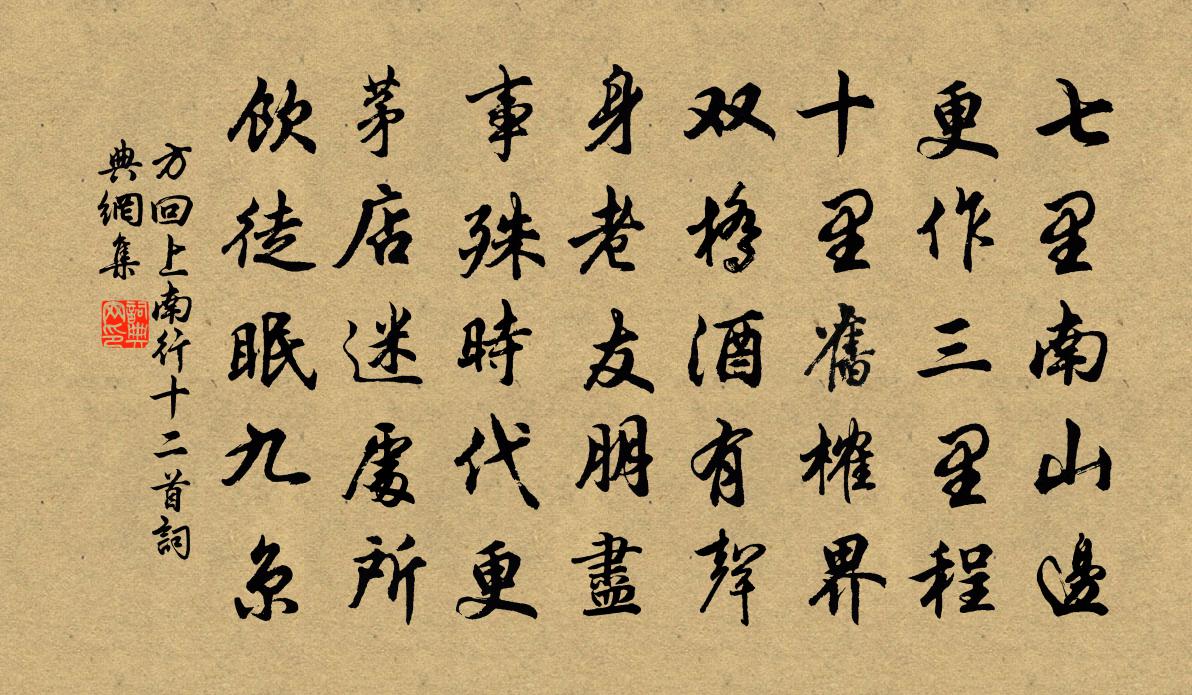 七里南山邊
更作三里程
十里舊榷界
双橋酒有聲
身老友朋盡
事殊時代更
茅店迷處所
飲徒眠九京
方回上南行十二首詞
典網集
詞典
网印